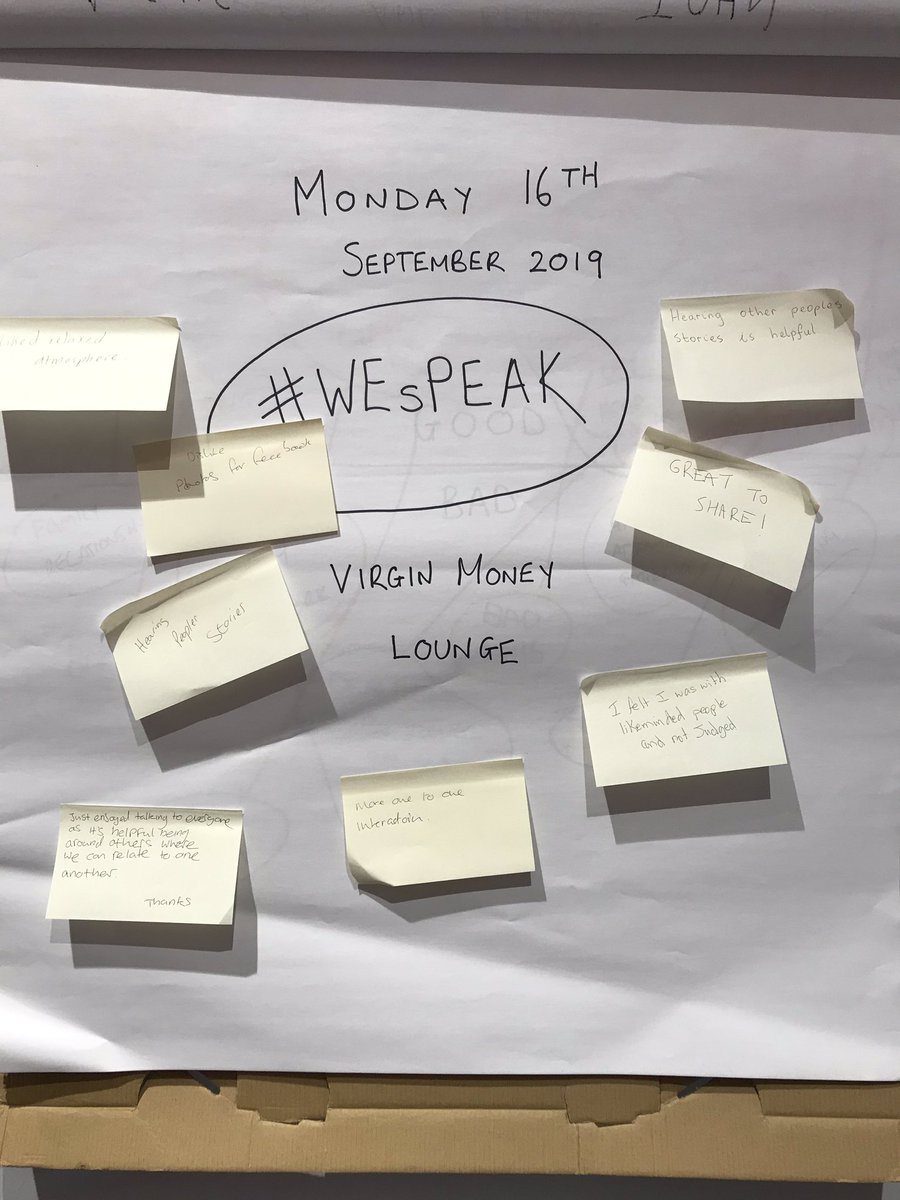 MONDAY 16TH
SEPTEMBER 2019
#WESPEAK
VIRGIN MONEY
LOUNGE
relaxed
atmosphere
Dislike
Photos for facebook
Hearing
Peoples
Stories
Just enjoyed talking to everyone
as it's helpful being
around others where
we can relate to one
another.
Thanks
More one to one
interactoin.
I felt I was with
likeminded people
and not Judged
GREAT TO
SHARE!
Hearing other peoples
stories is helpful
GOOD
BAD